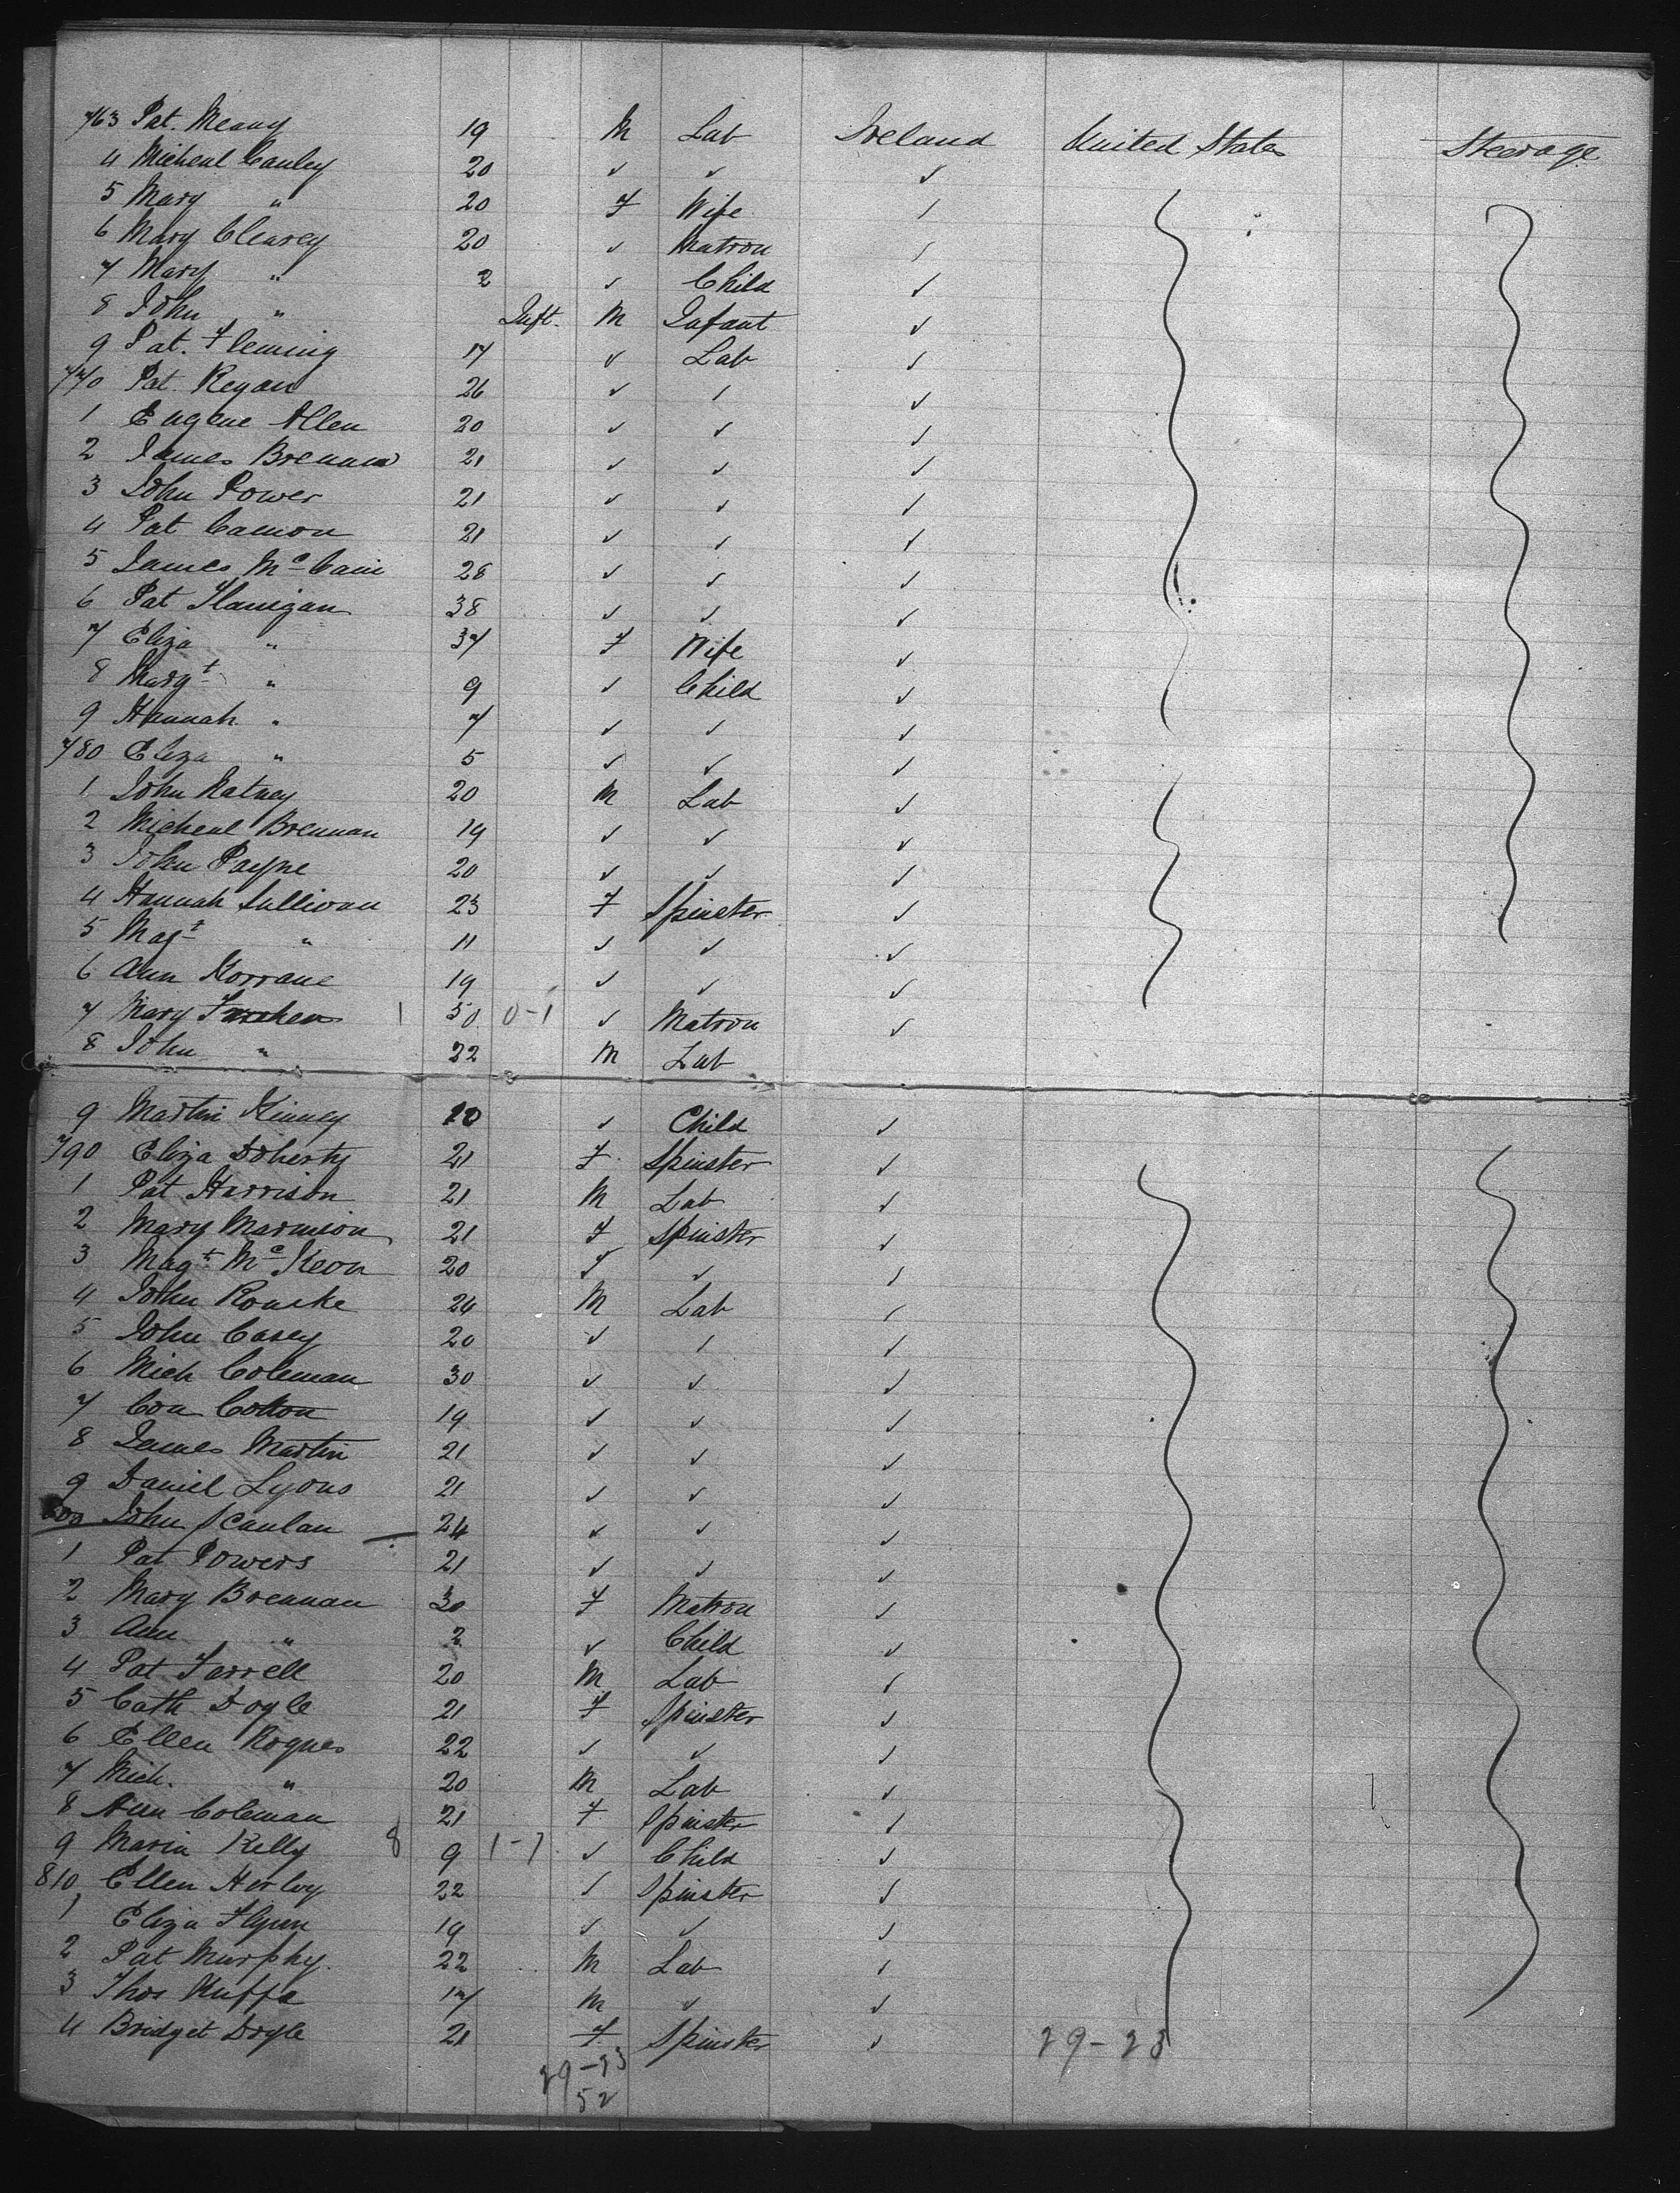 763 Pat. Meany 19 M Lab Ireland United States Steerage
4 Micheal Cauley 20 ✓ ✓ ✓
5 Mary " 20 F Wife ✓
6 Mary Clearey 20 ✓ Matron ✓
7 Mary " 2 ✓ Child ✓
8 John " Inft. M Infant ✓
9 Pat. Fleming 17 ✓ Lab ✓
770 Pat. Regan 26 ✓ ✓ ✓
1 Eugene Allen 20 ✓ ✓ ✓
2 James Brennan 21 ✓ ✓ ✓
3 John Power 21 ✓ ✓ ✓
4 Pat Cannon 21 ✓ ✓ ✓
5 James McCann 28 ✓ ✓ ✓
6 Pat Flanigan 38 ✓ ✓ ✓
7 Eliza " 37 F Wife ✓
8 Margt " 9 ✓ Child ✓
9 Hannah " 7 ✓ ✓ ✓
780 Eliza " 5 ✓ ✓ ✓
1 John Ratney 20 M Lab ✓
2 Micheal Brennan 19 ✓ ✓ ✓
3 John Payne 20 ✓ ✓ ✓
4 Hannah Sullivan 23 F Spinster ✓
5 Magt " 11 ✓ ✓ ✓
6 Ann Horrane 19 ✓ ✓ ✓
7 Mary 1 50 0-1 ✓ Matron ✓
8 John " 22 M Lab
9 Martin Kinney 10 ✓ Child ✓
790 Eliza Doherty 21 F Spinster ✓
1 Pat Harrison 21 M Lab ✓
2 Mary Marmion 21 F Spinster ✓
3 Magt McKeon 20 F ✓ ✓
4 John Rourke 24 M Lab ✓
5 John Casey 20 ✓ ✓ ✓
6 Mich Coleman 30 ✓ ✓ ✓
7 Con Cotton 19 ✓ ✓ ✓
8 James Martin 21 ✓ ✓ ✓
9 Daniel Lyons 21 ✓ ✓ ✓
800 John Scanlan 24 ✓ ✓ ✓
1 Pat Powers 21 ✓ ✓ ✓
2 Mary Brennan 30 F Matron ✓
3 Ann " 2 ✓ Child ✓
4 Pat Farrell 20 M Lab ✓
5 Cath Doyle 21 F Spinster ✓
6 Ellen Rogues 22 ✓ ✓ ✓
7 Mich. " 20 M Lab ✓
8 Ann Coleman 21 F Spinster ✓
9 Maria Kelly 8 9 1-1 ✓ Child ✓
810 Ellen Herley 22 ✓ Spinster ✓
1 Eliza Flynn 19 ✓ ✓ ✓
2 Pat Murphy. 22 M Lab ✓
3 Thos 17 M ✓ ✓
4 Bridget Doyle 21 F Spinster ✓ 29-23
29-23
52